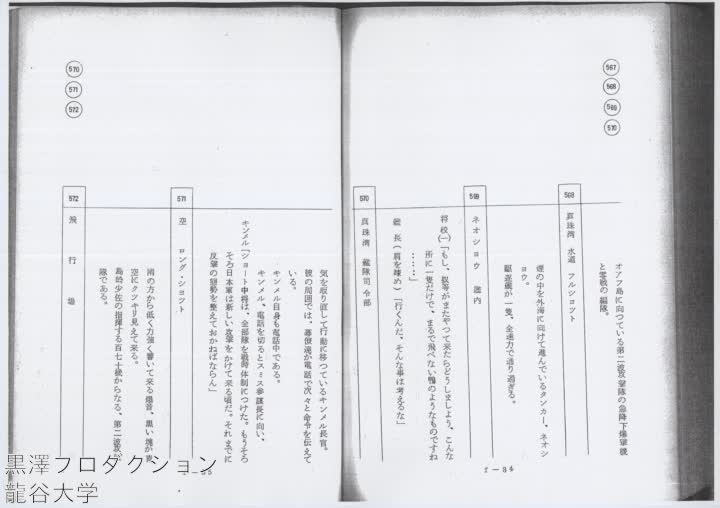 567
568
569
570
オアフ島に向つている第二波攻撃隊の急降下爆撃機
と零戦の編隊。
568 真珠湾 水道 フルショット
煙の中を外海に向けて進んでいるタンカー、ネオシ
ョウ。
駆逐艦が一隻、全速力で通り過ぎる。
569 ネオショウ 艦内
将校㈠「もし、奴等がまたやつて来たらどうしましよう、こんな
所に一隻だけで、まるで飛べない鴨のようなものですね
……」
艦長(肩を竦め)「行くんだ、そんな事は考えるな」
570 真珠湾 艦隊司令部
I-84
570
571
572
気を取り直して行動に移つているキンメル長官。
彼の周囲では、幕僚達が電話で次々と命令を伝えて
いる。
キンメル自身も電話中である。
キンメル、電話を切るとスミス参謀長に向い、
キンメル「ショート中将は、全部隊を戦時体制につけた。もうそろ
そろ日本軍は新しい攻撃をかけて来る頃だ。それまでに
反撃の態勢を整えておかねばならん」
571 空 ロング・ショット
雨の方から低く力強く響いて来る爆音、黒い塊が東
空にクッキリ見えて来る。
島崎少佐の指揮する百七十機からなる、第二波攻
隊である。
572 飛行場
黒澤プロダクション
龍谷大学